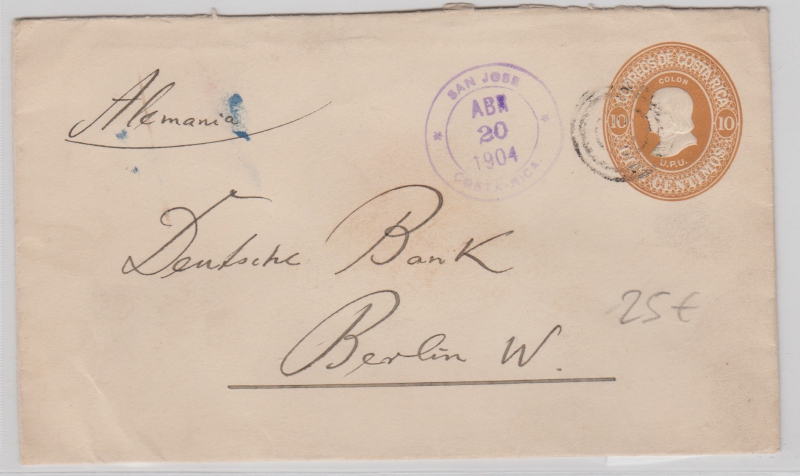 Alemania
SAN JOSE
ABR
20
1904
COSTA-RICA
CORREOS DE COSTA RICA
COLON
10 10
U.P.U.
DIEZ CENTIMOS
Deutsche Bank
25€
Berlin W.